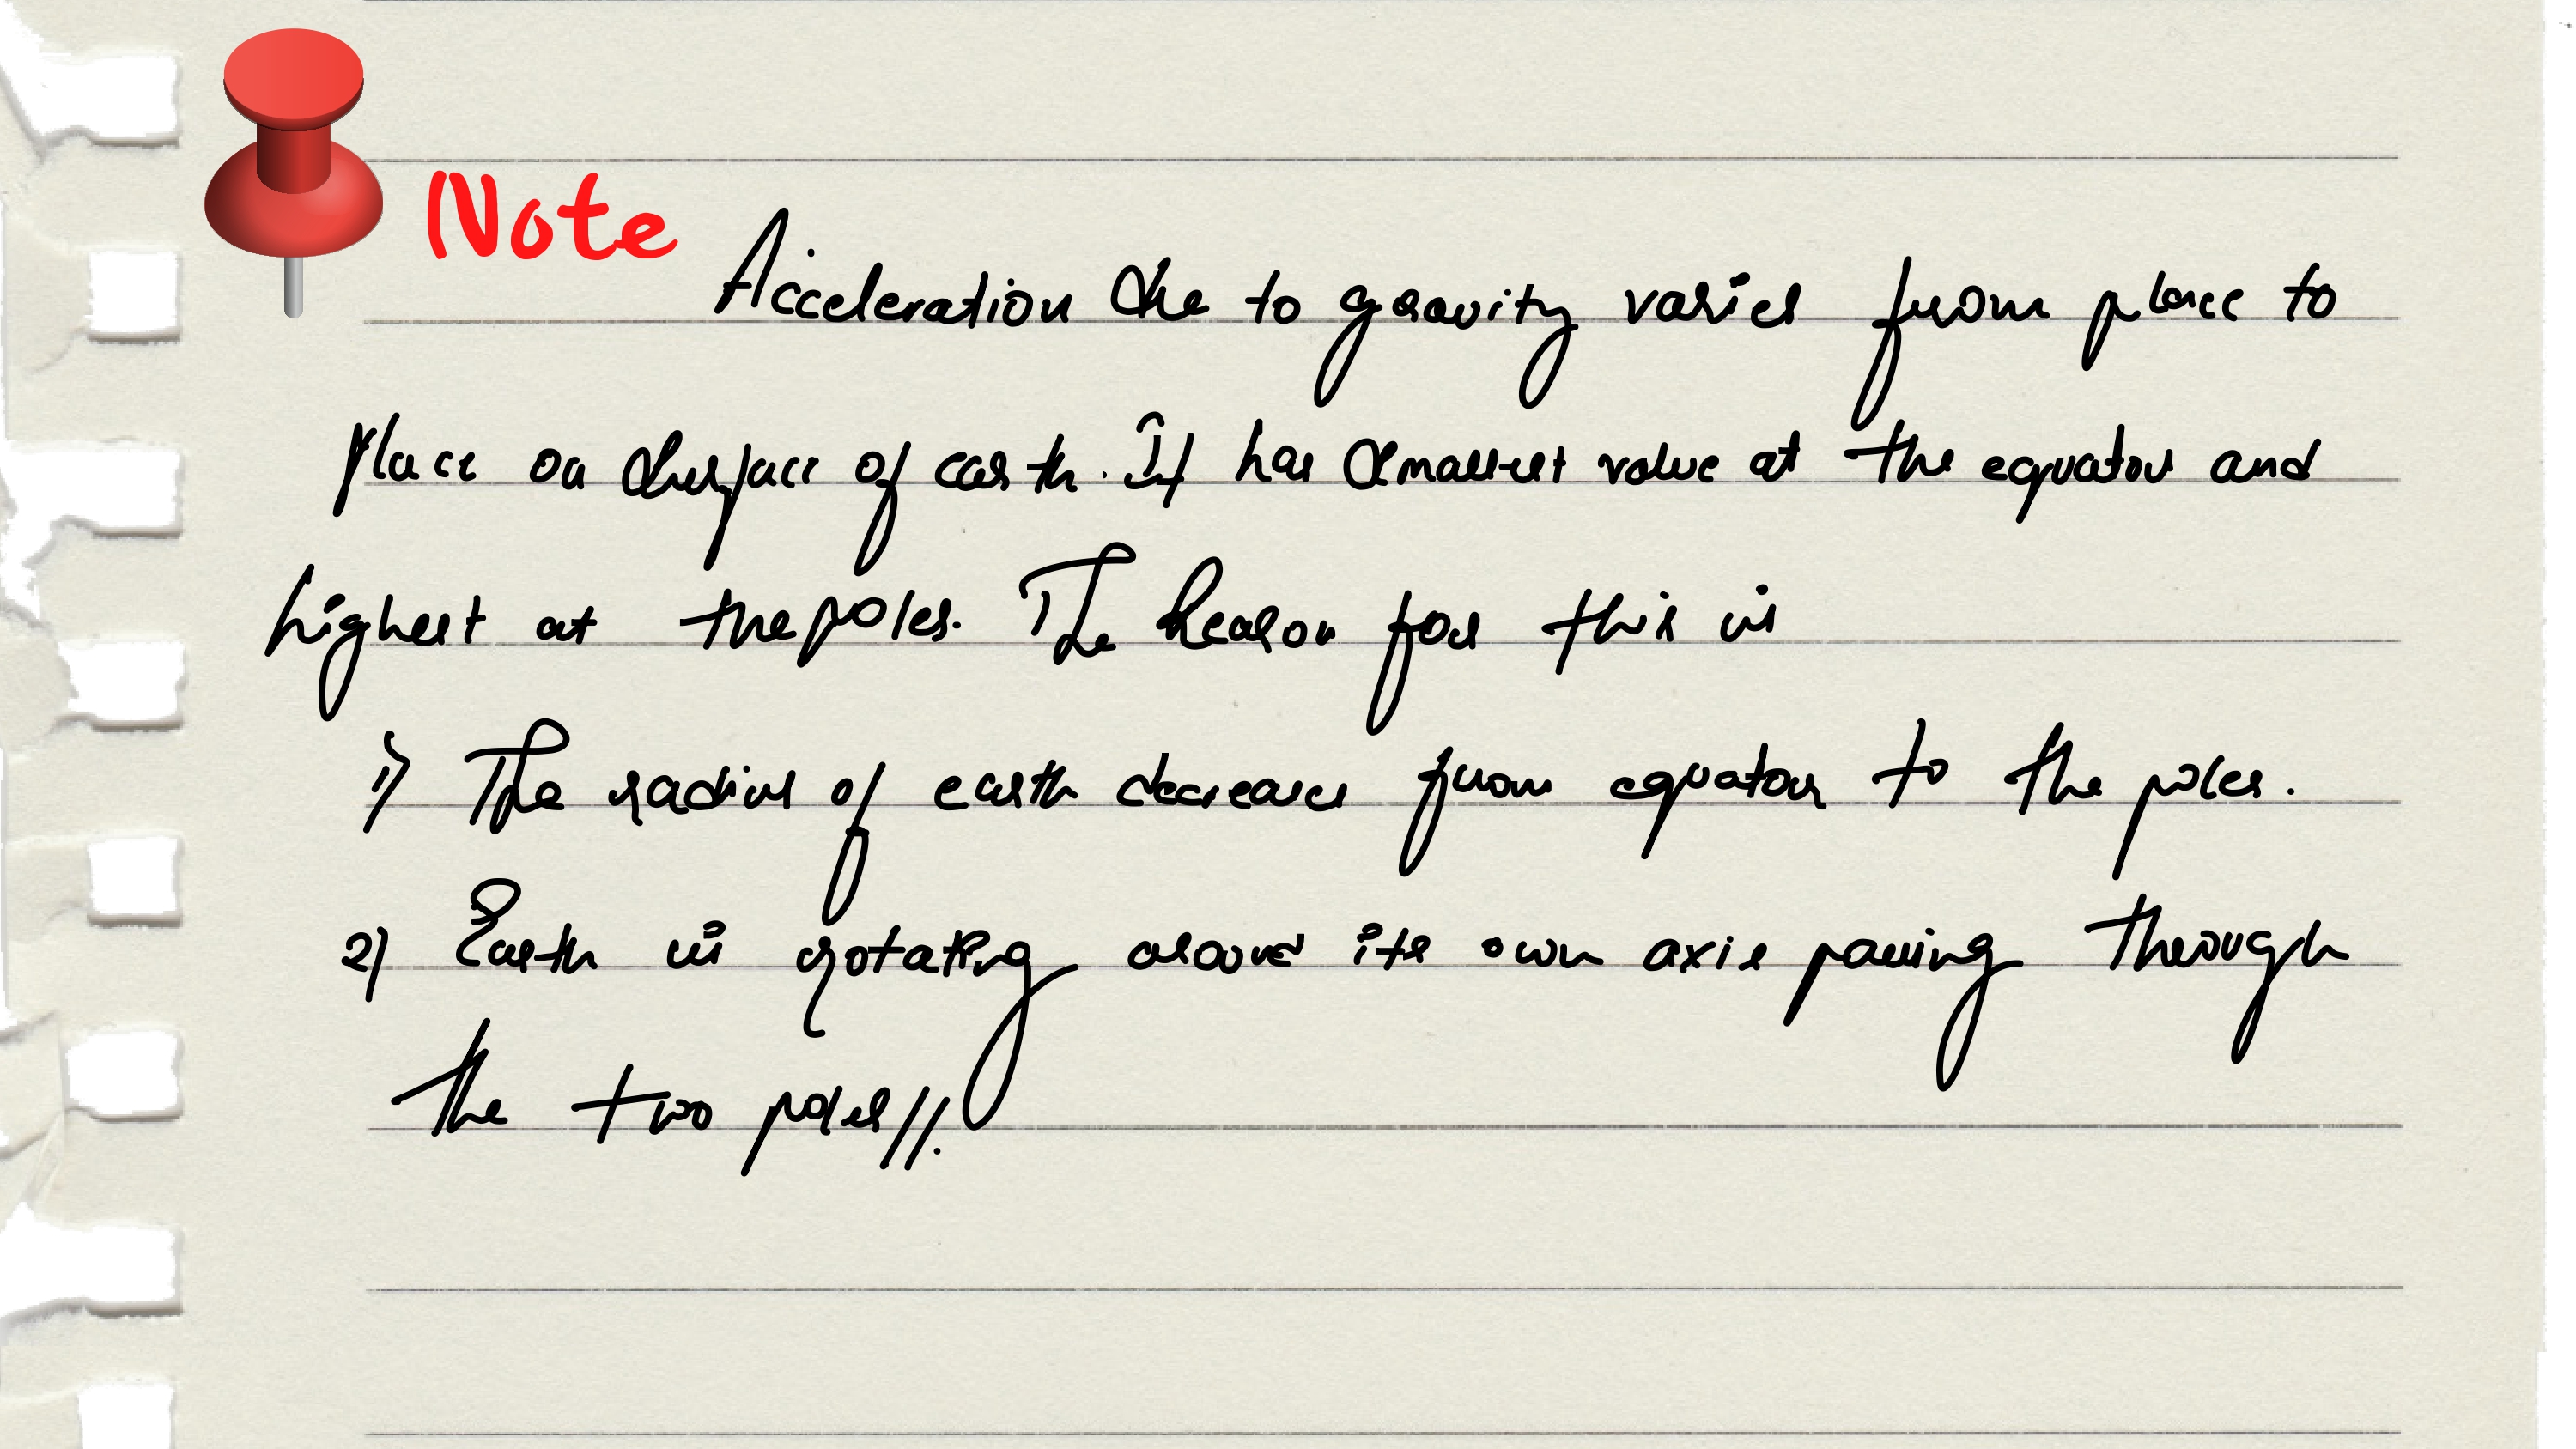 Note Acceleration due to gravity varies from place to
place on surface of earth. It has smallest value at the equator and
highest at the poles. The Reason for this is
1) The radius of earth decreases from equator to the poles.
2) Earth is rotating around its own axis passing through
the two poles//.